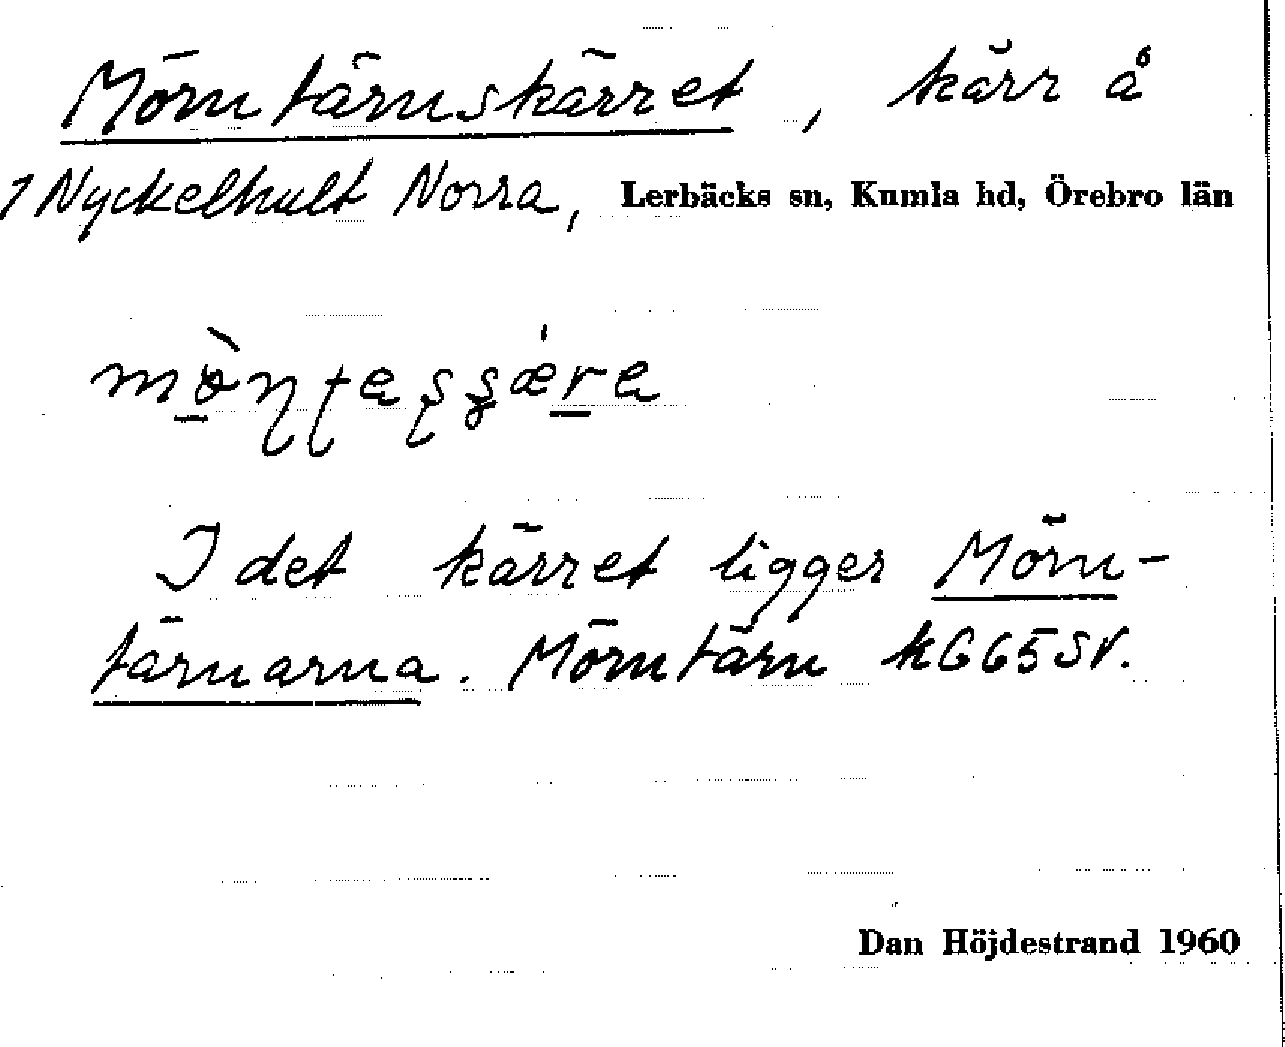 Mörntärnskärret, kärr å
1 Nyckelhult Norra, Lerbäcks sn, Kumla hd, Örebro län
I det kärret ligger Mörn-
tärnarna. Mörntärn k G65SV.
Dan Höjdestrand 1960